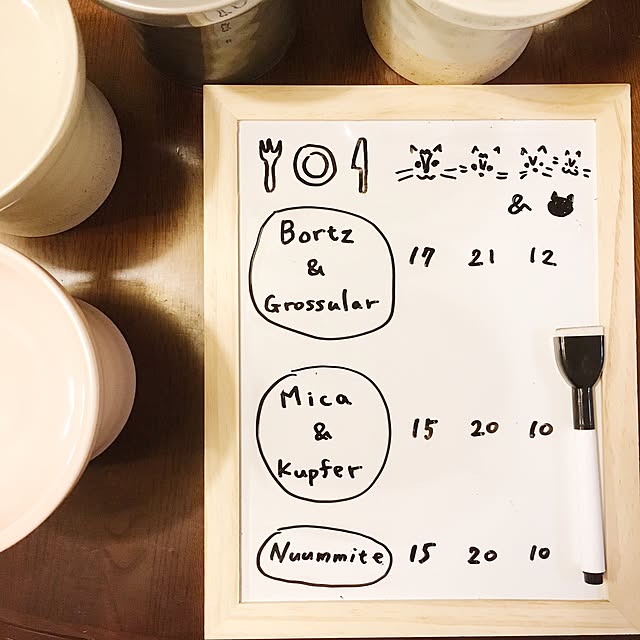 &
Bortz
&
Grossular
17 21 12
Mica
&
Kupfer
15 20 10
Nuummite 15 20 10